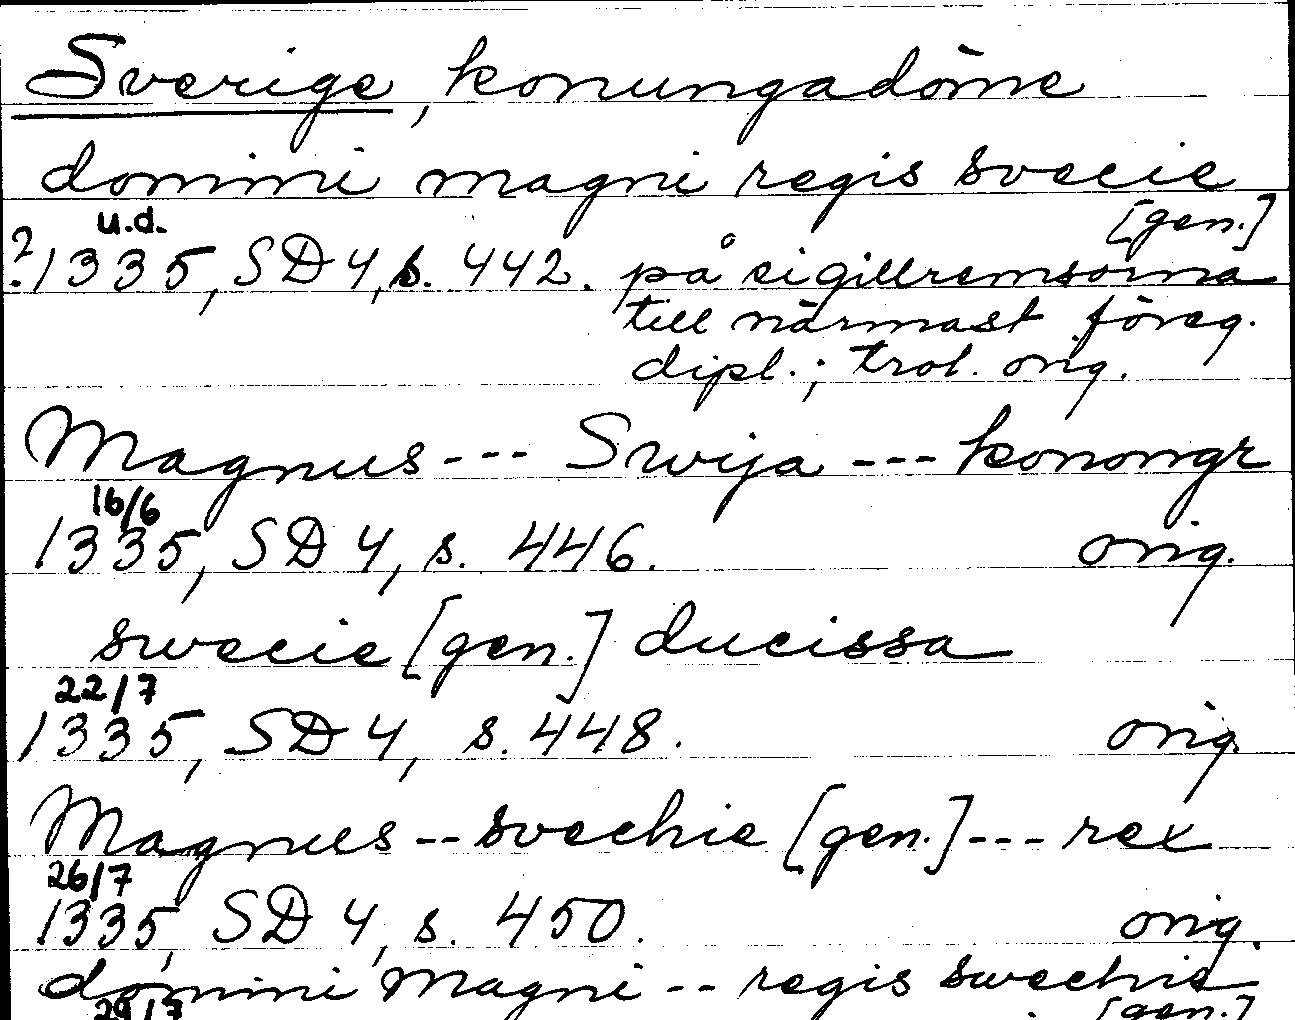 Sverige, konungadöme
domini magni regis svecie
[gen.]
u.d.
?1335, SD 4, s. 442. på sigillremsorna
till närmast föreg.
dipl.; trol. orig.
Magnus --- Swija --- konongr
16/6
1335, SD 4, s. 446. orig.
swecie [gen.] ducissa
22/7
1335, SD 4, s. 448. orig.
Magnus -- svechie [gen.] --- rex
26/7
1335, SD 4, s. 450. orig.
domini Magni -- regis swechie
29/7 [gen.]